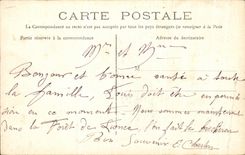 CARTE POSTALE
La Correspondance au recto n'est pas acceptée par tous les pays étrangers (se renseigner à la Poste)
Partie réservée à la correspondance Adresse du destinataire
Mr et Mme
Bonjour et bonne santé à toute
la famille, Louis doit être en
en ce moment Nous sommes
dans la Forêt de Il fait
Bon Souvenir E.